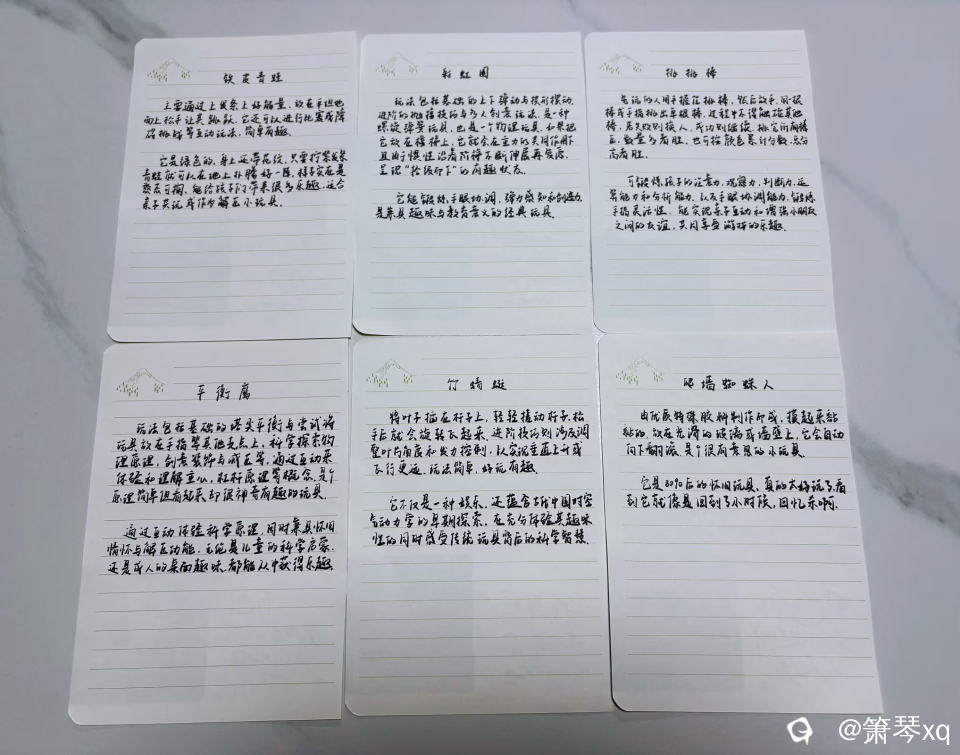 铁皮青蛙
主要通过上发条上好能量,放在平坦地
面上松手让其跳跃。它还可以进行比赛或障
碍挑战等互动玩法,简单有趣。
它是绿色的,身上还带花纹,只要拧紧发条
青蛙就可以在地上扑腾好一阵,样子实在是
憨态可掬,能给孩子们带来很多乐趣,适合
亲子共玩或作为解压小玩具。
彩虹圈
玩法包括基础的上下弹动与拱形摆动,
进阶的抛接技巧与多人创意玩法。是一种
螺旋弹簧玩具,也是一个物理玩具。如果把
它放在楼梯上,它就会在重力的共同作用下
且由于惯性沿着阶梯不断伸展再复原,
呈现“拾级而下”的有趣状态。
它能锻炼手眼协调,弹力感知和创造力,
是兼具趣味与教育意义的经典玩具。
挑挑棒
先玩的人用手握住挑棒,然后放手,用一根
棒或手指挑出单根棒,过程中不得触碰其他
棒,若失败则换人,成功则继续,挑完所有棒
后,数量多者胜,也可按颜色累计分数,总分
高者胜。
可锻炼孩子的注意力,观察力,判断力,运
算能力和分析能力,以及手眼协调能力,锻炼
手指灵活性,能实现亲子互动和增强小朋友
之间的友谊,共同享受游戏的乐趣。
平衡鹰
玩法包括基础的喙尖平衡与尝试将
玩具放在手指等其他支点上,科学探索物
理原理,创意装饰与减压等,通过互动来
体验和理解重心,杠杆原理等概念,是个
原理简单但看起来却很神奇有趣的玩具。
通过互动体验科学原理,同时兼具怀旧
情怀与解压功能,无论是儿童的科学启蒙,
还是成人的桌面趣味,都能从中获得乐趣。
竹蜻蜓
将叶子插在杆子上,轻轻搓动杆子,松
手后就会旋转飞起来,进阶技巧则涉及调
整叶片角度和发力控制,以实现垂直上升或
飞行更远,玩法简单,好玩有趣。
它不仅是一种娱乐,还蕴含古代中国对空
气动力学的早期探索,在充分体验其趣味
性的同时感受传统玩具背后的科学智慧。
爬墙蜘蛛人
由优质特殊胶料制作而成,摸起来黏
黏的,放在光滑的玻璃或墙壁上,它会自动
向下翻滚,是个很有意思的小玩具。
它是8090后的怀旧玩具,真的太好玩了,看
到它就像是回到了小时候,回忆杀啊。
@箫琴xq